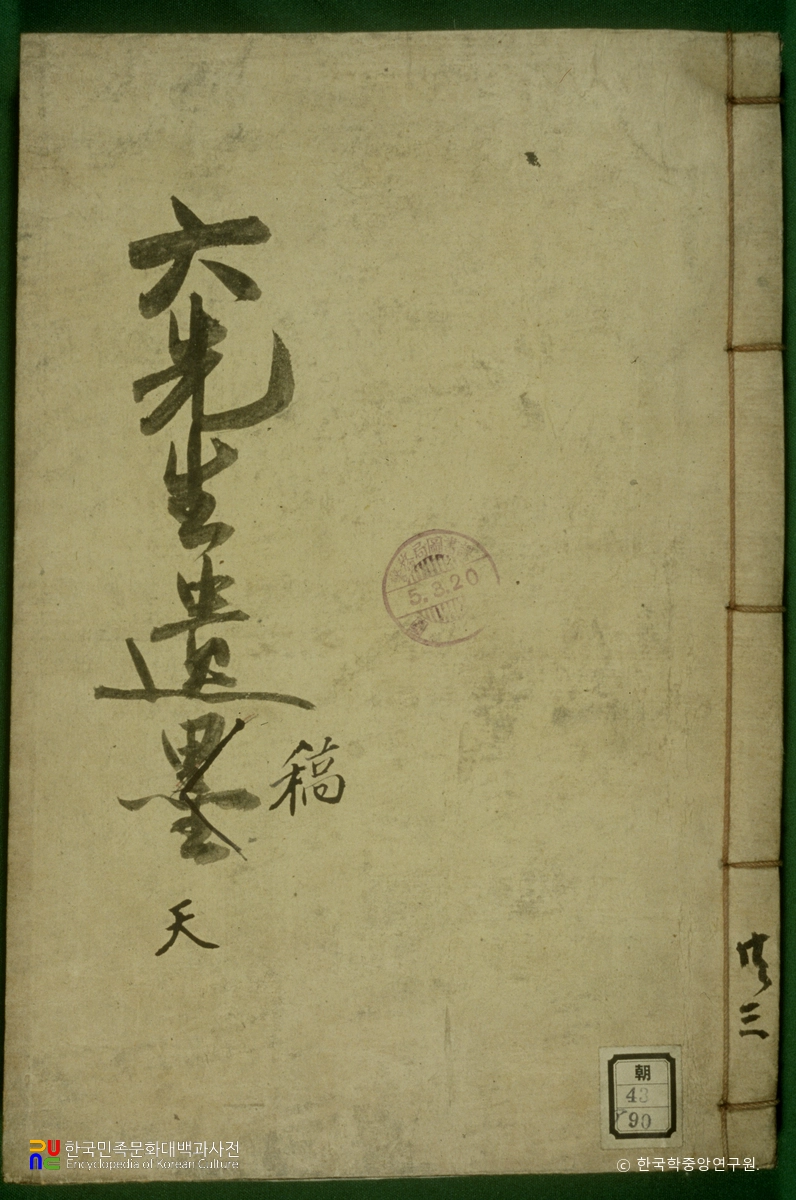 六先生遺墨
稿
天
共三
5.3.20
朝
43
90
한국민족문화대백과사전
Encyclopedia of Korean Culture
© 한국학중앙연구원.